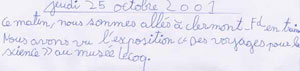 jeudi 25 octobre 2001
Ce matin, nous sommes allés à clermont-Fd en train
Nous avons vu l'exposition « Des voyages pour la
science » au musée Lecoq.